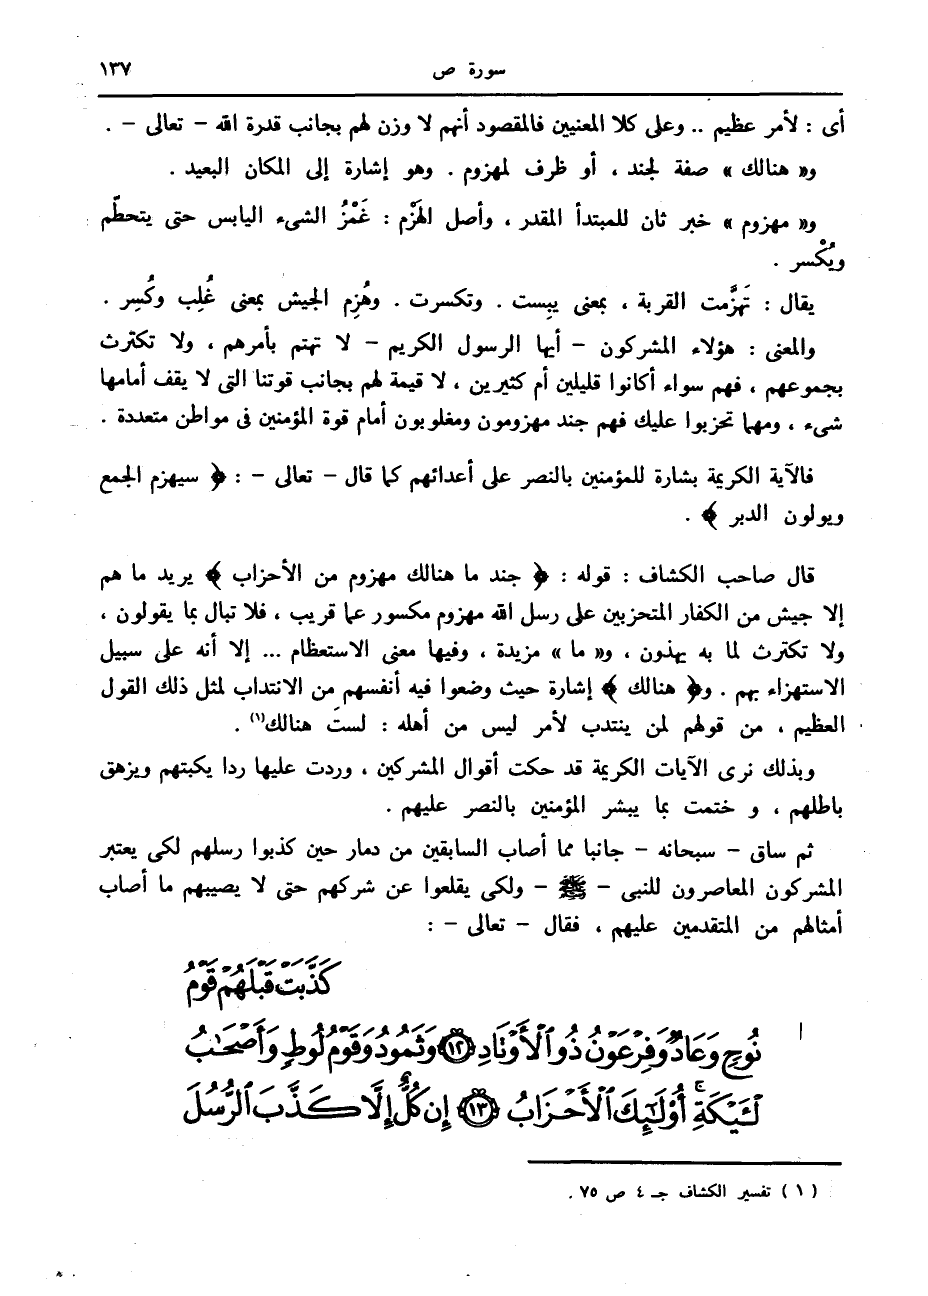 سورة ص ١٣٧
أى : لأمر عظيم .. وعلى كلا المعنيين فالمقصود أنهم لا وزن لهم بجانب قدرة الله – تعالى – .
و« هنالك » صفة لجند ، أو ظرف لمهزوم . وهو إشارة إلى المكان البعيد .
و« مهزوم » خبر ثان للمبتدأ المقدر ، وأصل الهَزْم : غَمْزُ الشىء اليابس حتى يتحطّم
ويُكْسر .
يقال : تَهزَّمت القربة ، بمعنى يبِست . وتكسرت . وهُزِم الجيش بمعنى غُلِب وكُسِر .
والمعنى : هؤلاء المشركون – أيها الرسول الكريم – لا تهتم بأمرهم ، ولا تكترث
بجموعهم ، فهم سواء أكانوا قليلين أم كثيرين ، لا قيمة لهم بجانب قوتنا التى لا يقف أمامها
شىء ، ومهما تحزبوا عليك فهم جند مهزومون ومغلوبون أمام قوة المؤمنين فى مواطن متعددة .
فالآية الكريمة بشارة للمؤمنين بالنصر على أعدائهم كما قال – تعالى – : ﴿ سيهزم الجمع
ويولون الدبر ﴾ .
قال صاحب الكشاف : قوله : ﴿ جند ما هنالك مهزوم من الأحزاب ﴾ يريد ما هم
إلا جيش من الكفار المتحزبين على رسل الله مهزوم مكسور عما قريب ، فلا تبال بما يقولون ،
ولا تكترث لما به يهذون ، و« ما » مزيدة ، وفيها معنى الاستعظام ... إلا أنه على سبيل
الاستهزاء بهم . و﴿ هنالك ﴾ إشارة حيث وضعوا فيه أنفسهم من الانتداب لمثل ذلك القول
العظيم ، من قولهم لمن ينتدب لأمر ليس من أهله : لستَ هنالك(١) .
وبذلك نرى الآيات الكريمة قد حكت أقوال المشركين ، وردت عليها ردا يكبتهم ويزهق
باطلهم ، و ختمت بما يبشر المؤمنين بالنصر عليهم .
ثم ساق – سبحانه – جانبا مما أصاب السابقين من دمار حين كذبوا رسلهم لكى يعتبر
المشركون المعاصرون للنبى – ﷺ – ولكى يقلعوا عن شركهم حتى لا يصيبهم ما أصاب
أمثالهم من المتقدمين عليهم ، فقال – تعالى – :
كَذَّبَتْ قَبْلَهُمْ قَوْمُ
نُوحٍ وَعَادٌ وَفِرْعَوْنُ ذُو ٱلْأَوْتَادِ ١٢ وَثَمُودُ وَقَوْمُ لُوطٍ وَأَصْحَٰبُ
لْـَٔيْكَةِ ۚ أُو۟لَٰٓئِكَ ٱلْأَحْزَابُ ١٣ إِن كُلٌّ إِلَّا كَذَّبَ ٱلرُّسُلَ
( ١ ) تفسير الكشاف جـ ٤ ص ٧٥ .